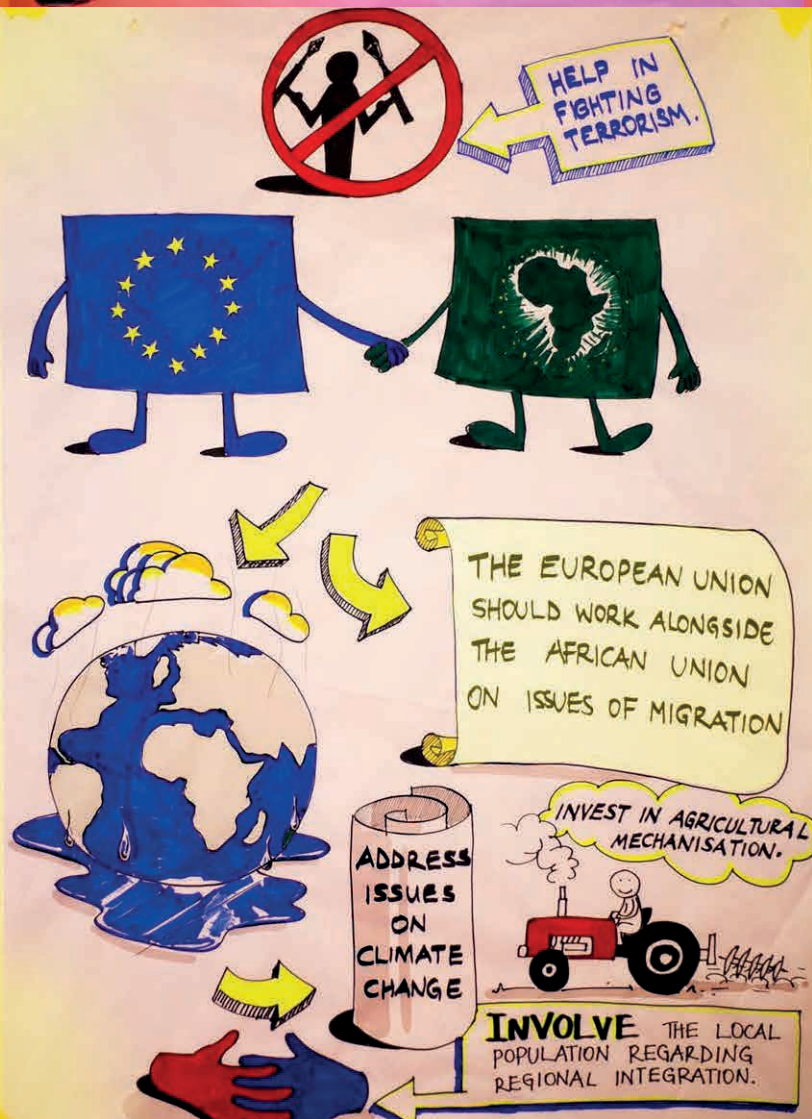 HELP IN
FIGHTING
TERRORISM.
THE EUROPEAN UNION
SHOULD WORK ALONGSIDE
THE AFRICAN UNION
ON ISSUES OF MIGRATION
INVEST IN AGRICULTURAL
MECHANISATION.
ADDRESS
ISSUES
ON
CLIMATE
CHANGE
INVOLVE THE LOCAL
POPULATION REGARDING
REGIONAL INTEGRATION.